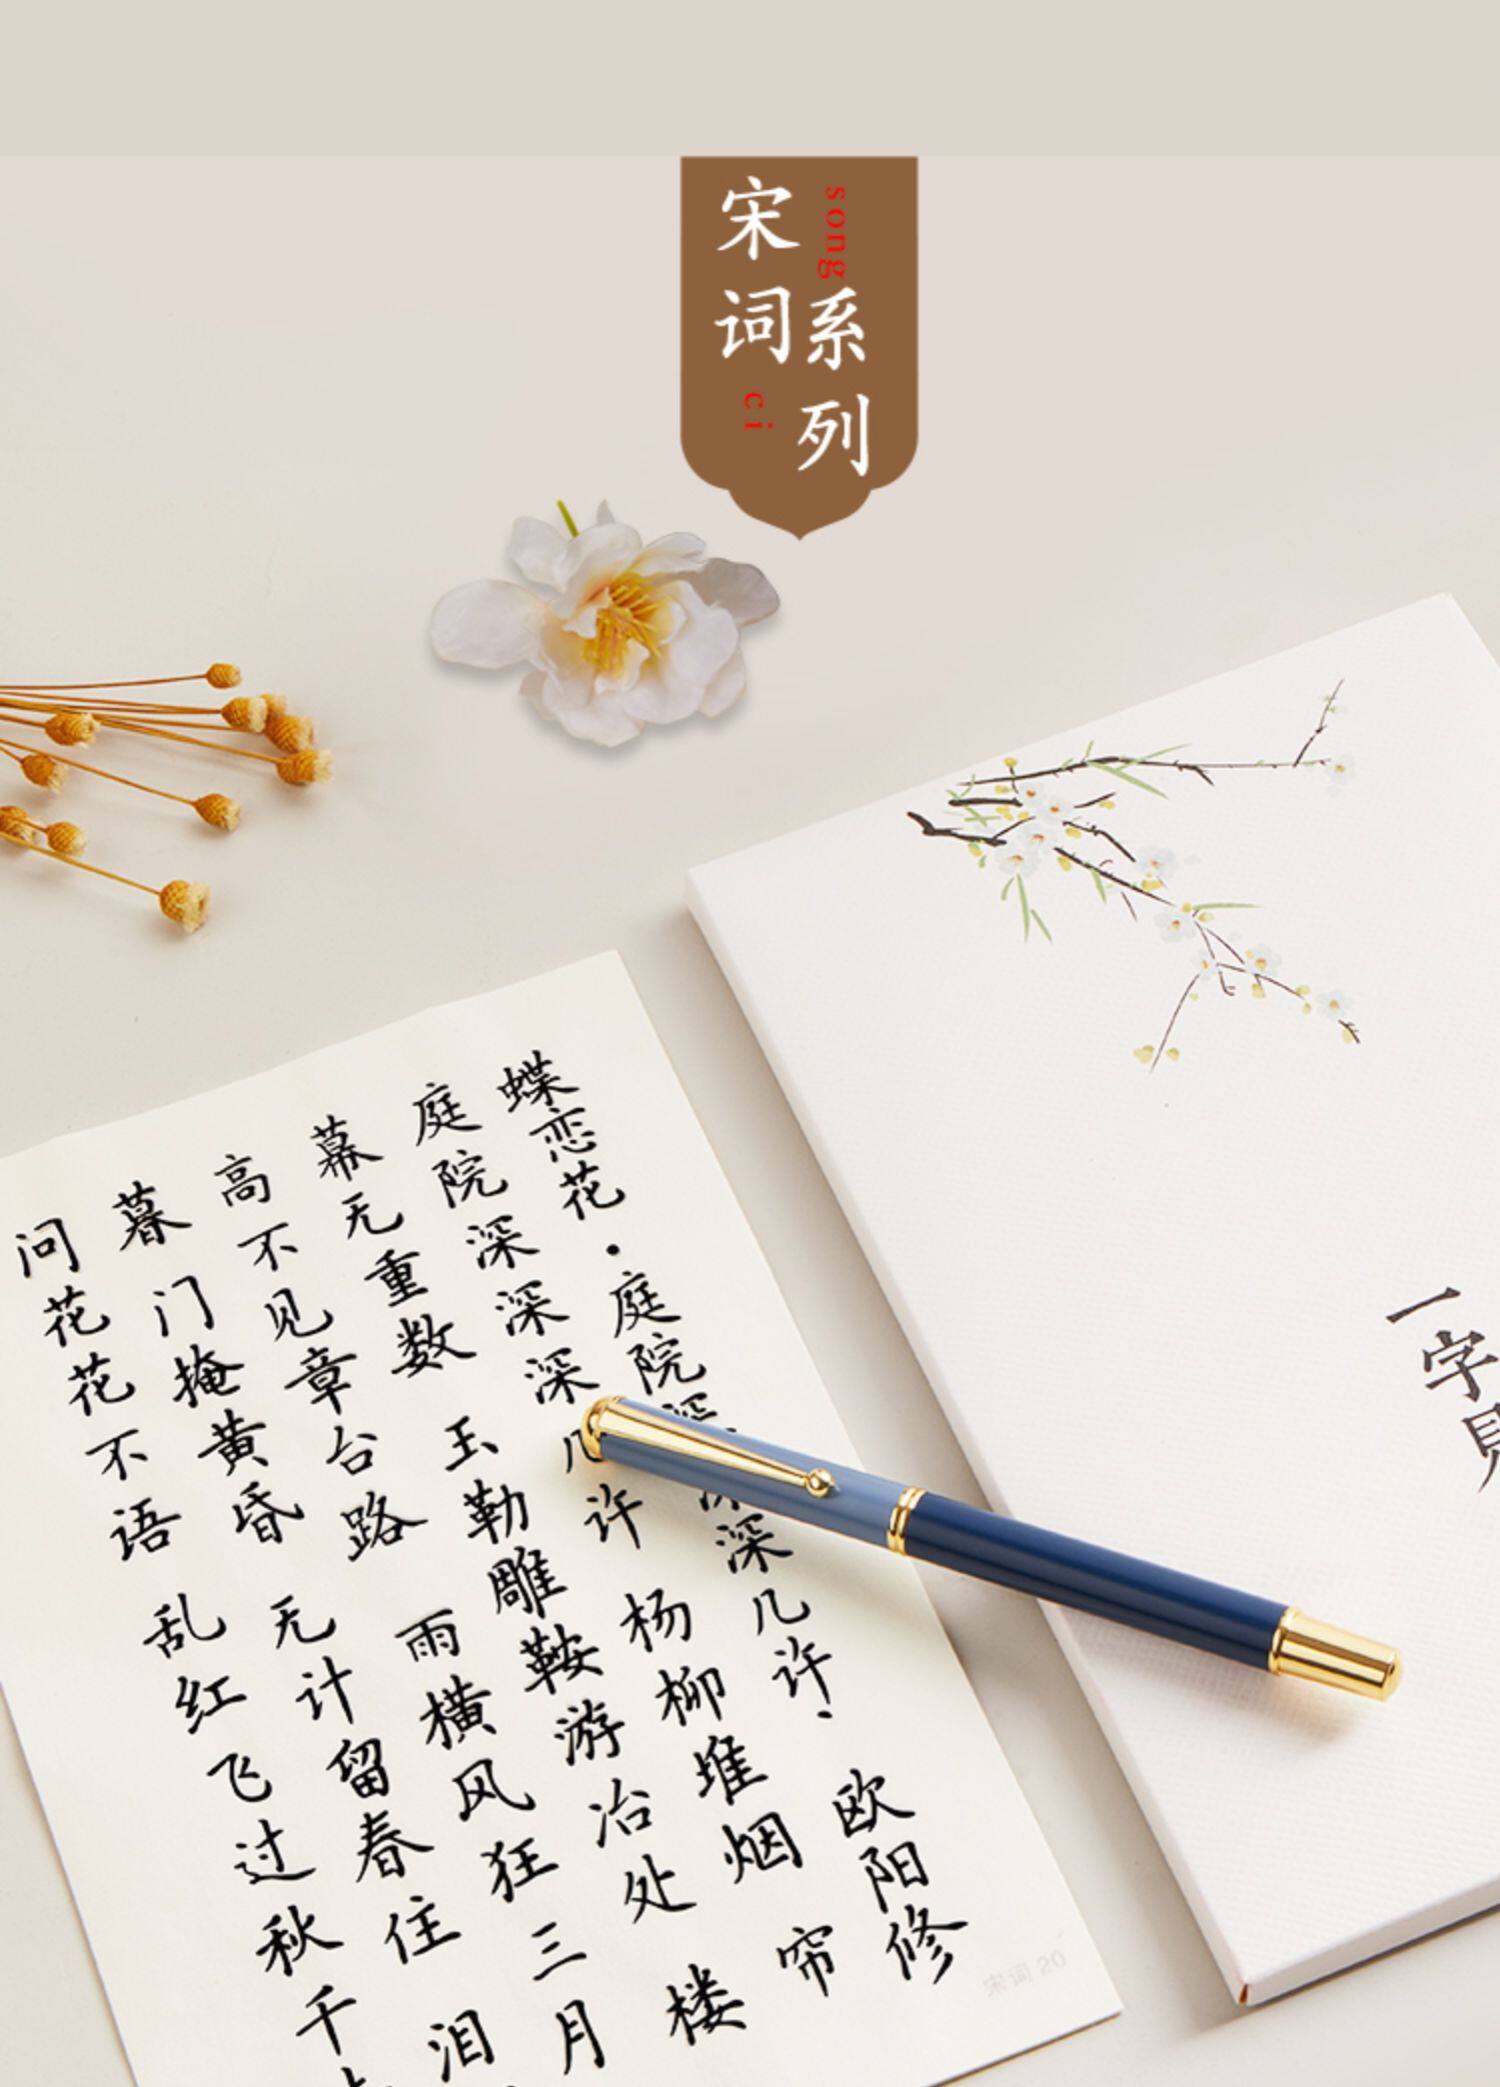 宋词
song
ci
系列
蝶恋花·庭院深深深几许· 欧阳修
庭院深深深几许 杨柳堆烟 帘
幕无重数 玉勒雕鞍游冶处 楼
高不见章台路 雨横风狂三月
暮 门掩黄昏 无计留春住 泪
问花花不语 乱红飞过秋千
宋词 20
一字